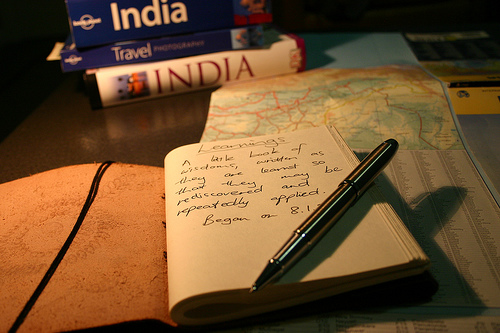 India
Travel PHOTOGRAPHY
INDIA
Learnings
A little book of
wisdoms, written as
they are learnt so
that they may be
rediscovered and
repeatedly applied.
Began on 8.1